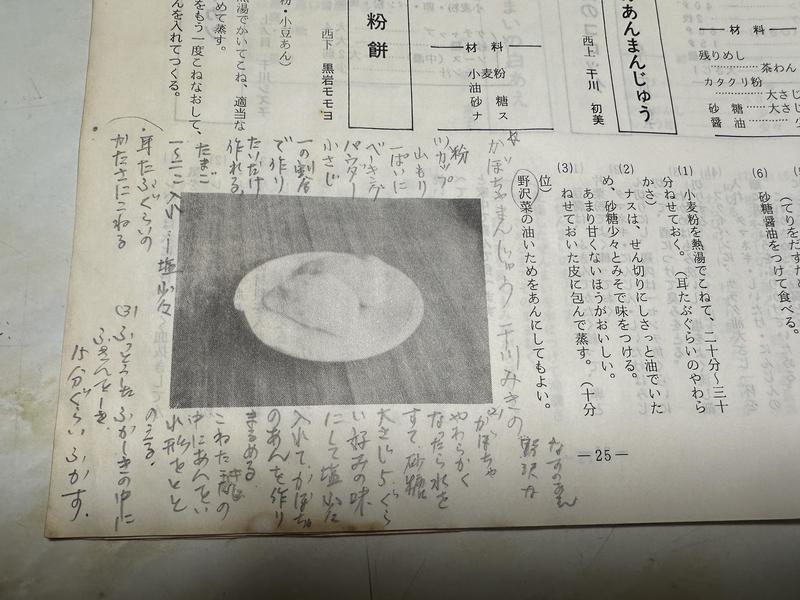 あんまんじゅう
西上 干川 初美
材料
残りめし
茶わん
カタクリ粉
大さじ
砂糖
大さじ
醤油
小さ
(てりをだすため
砂糖醤油をつけて食べる。
(6)
材料
小麦粉
油
砂糖
ナス
(1) 小麦粉を熱湯でこねて、二十分〜三十
分ねせておく。(耳たぶぐらいのやわら
かさ)
(2) ナスは、せん切りにしさっと油でいた
め、砂糖少々とみそで味をつける。
あまり甘くないほうがおいしい。
(3) ねせておいた皮に包んで蒸す。(十分
位)
野沢菜の油いためをあんにしてもよい。
粉餅
西下 黒岩モモヨ
粉・小豆あん)
熱湯でかいてこね、適当な
めて蒸す。
をもう一度こねなおして、
んを入れてつくる。
かぼちゃまんじゅう 干川みきの
粉
カップ
山もり
一ぱいに
ベーキング
パウダー
小さじ
一の割合
で作り
たいだけ
作れる。
たまご
入れ
塩少々
・耳たぶぐらいの
かたさにこねる
かぼちゃ
やわらかく
なったら水を
すて、砂糖
大さじ5ぐら
い好みの味
にして塩少々
入れて、かぼちゃ
のあんを作り
まるめる
こねた
中にあんをい
れ形をとと
のえる。
(3) ふっとうした ふかしきの中に
ふきんをしき
15分ぐらい ふかす。
なすのあん
野沢な
—25—